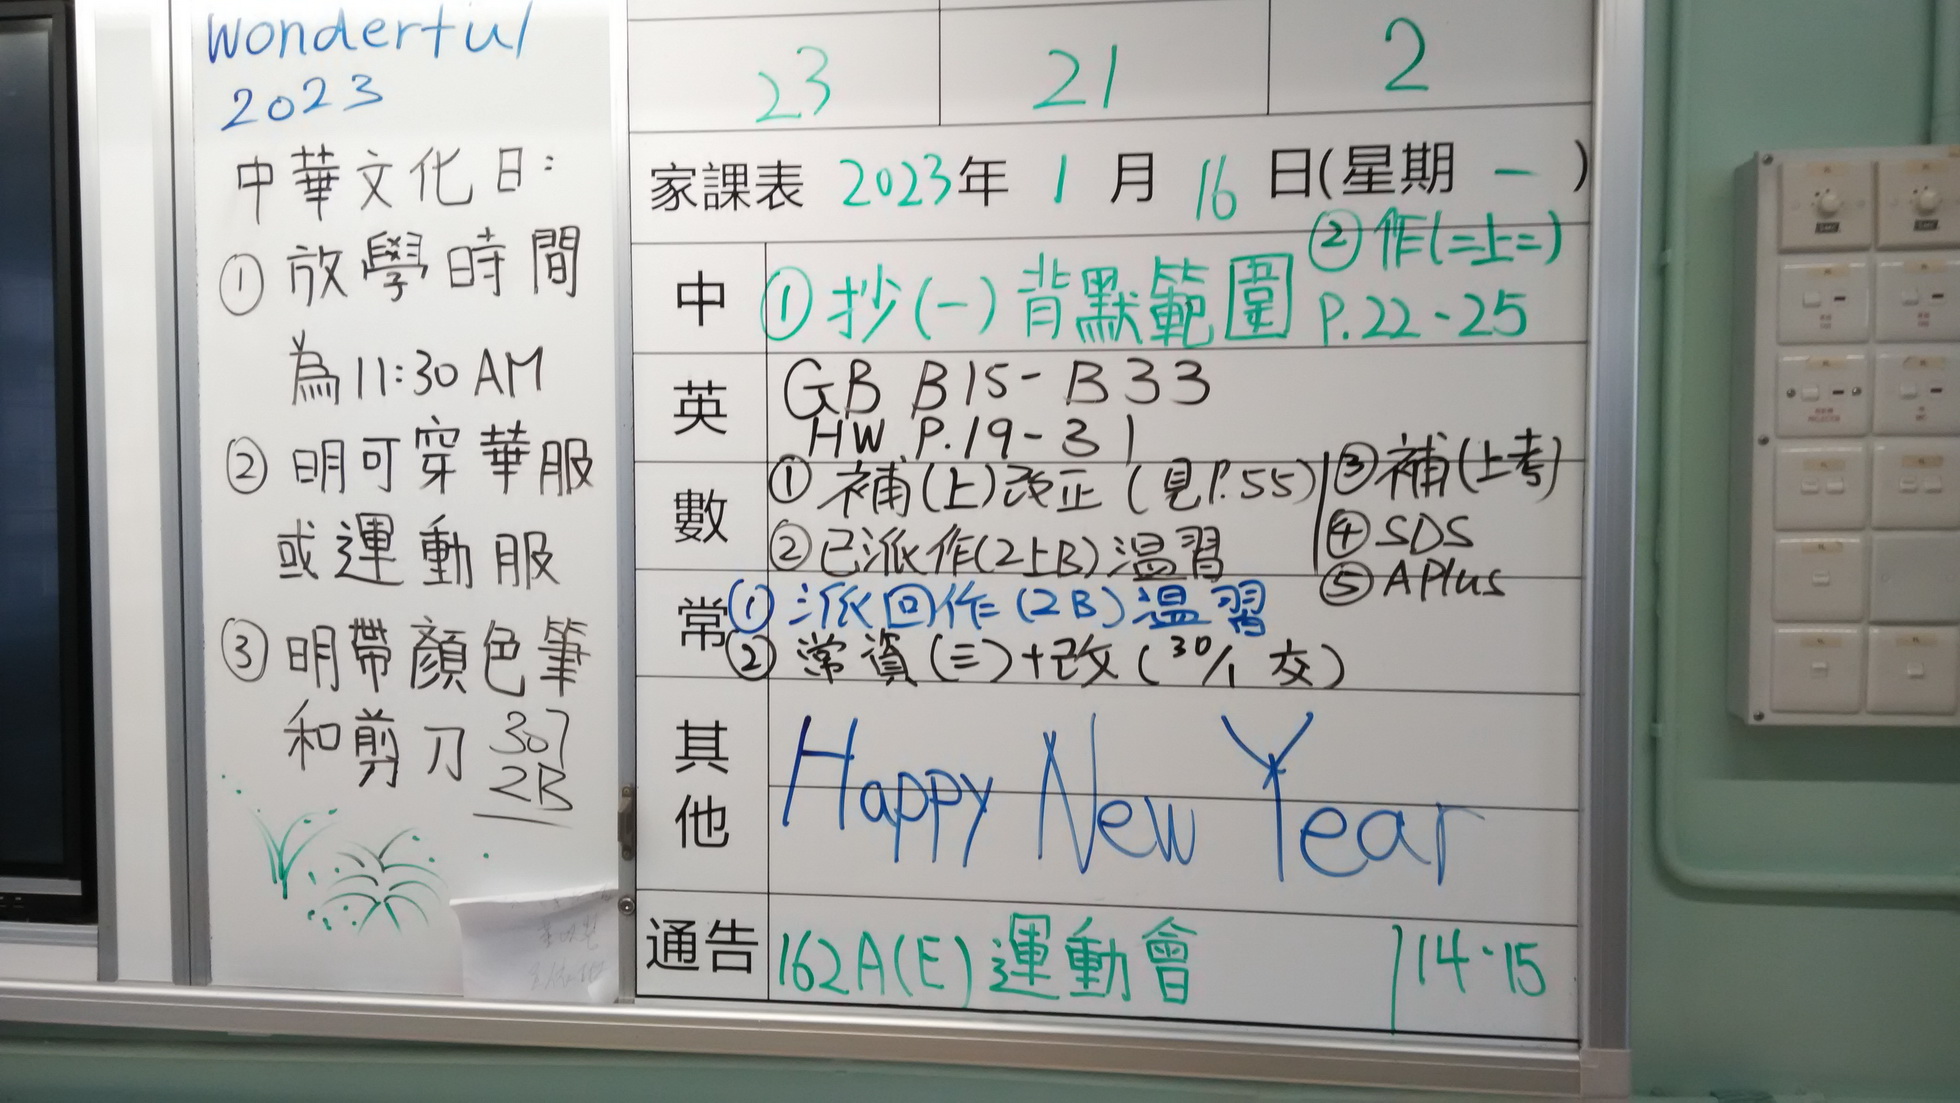 Wonderful
2023
中華文化日:
① 放學時間
為11:30 AM
② 明可穿華服
或運動服
③ 明帶顏色筆
和剪刀 307
2B
23 21 2
家課表 2023年 1 月 16 日(星期 一 )
中 ① 抄(一)背默範圍 ② 作(二上二)
P.22-25
英 GB B15-B33
HW P.19-31
數 ① 補(上)改正(見P.55) ③補(上考)
② 已派作(2上B)溫習 ④SDS
⑤APlus
常 ① 派回作(2B)溫習
② 常資(三)+改(30/1 交)
其他 Happy New Year
通告 162A(E)運動會 14-15